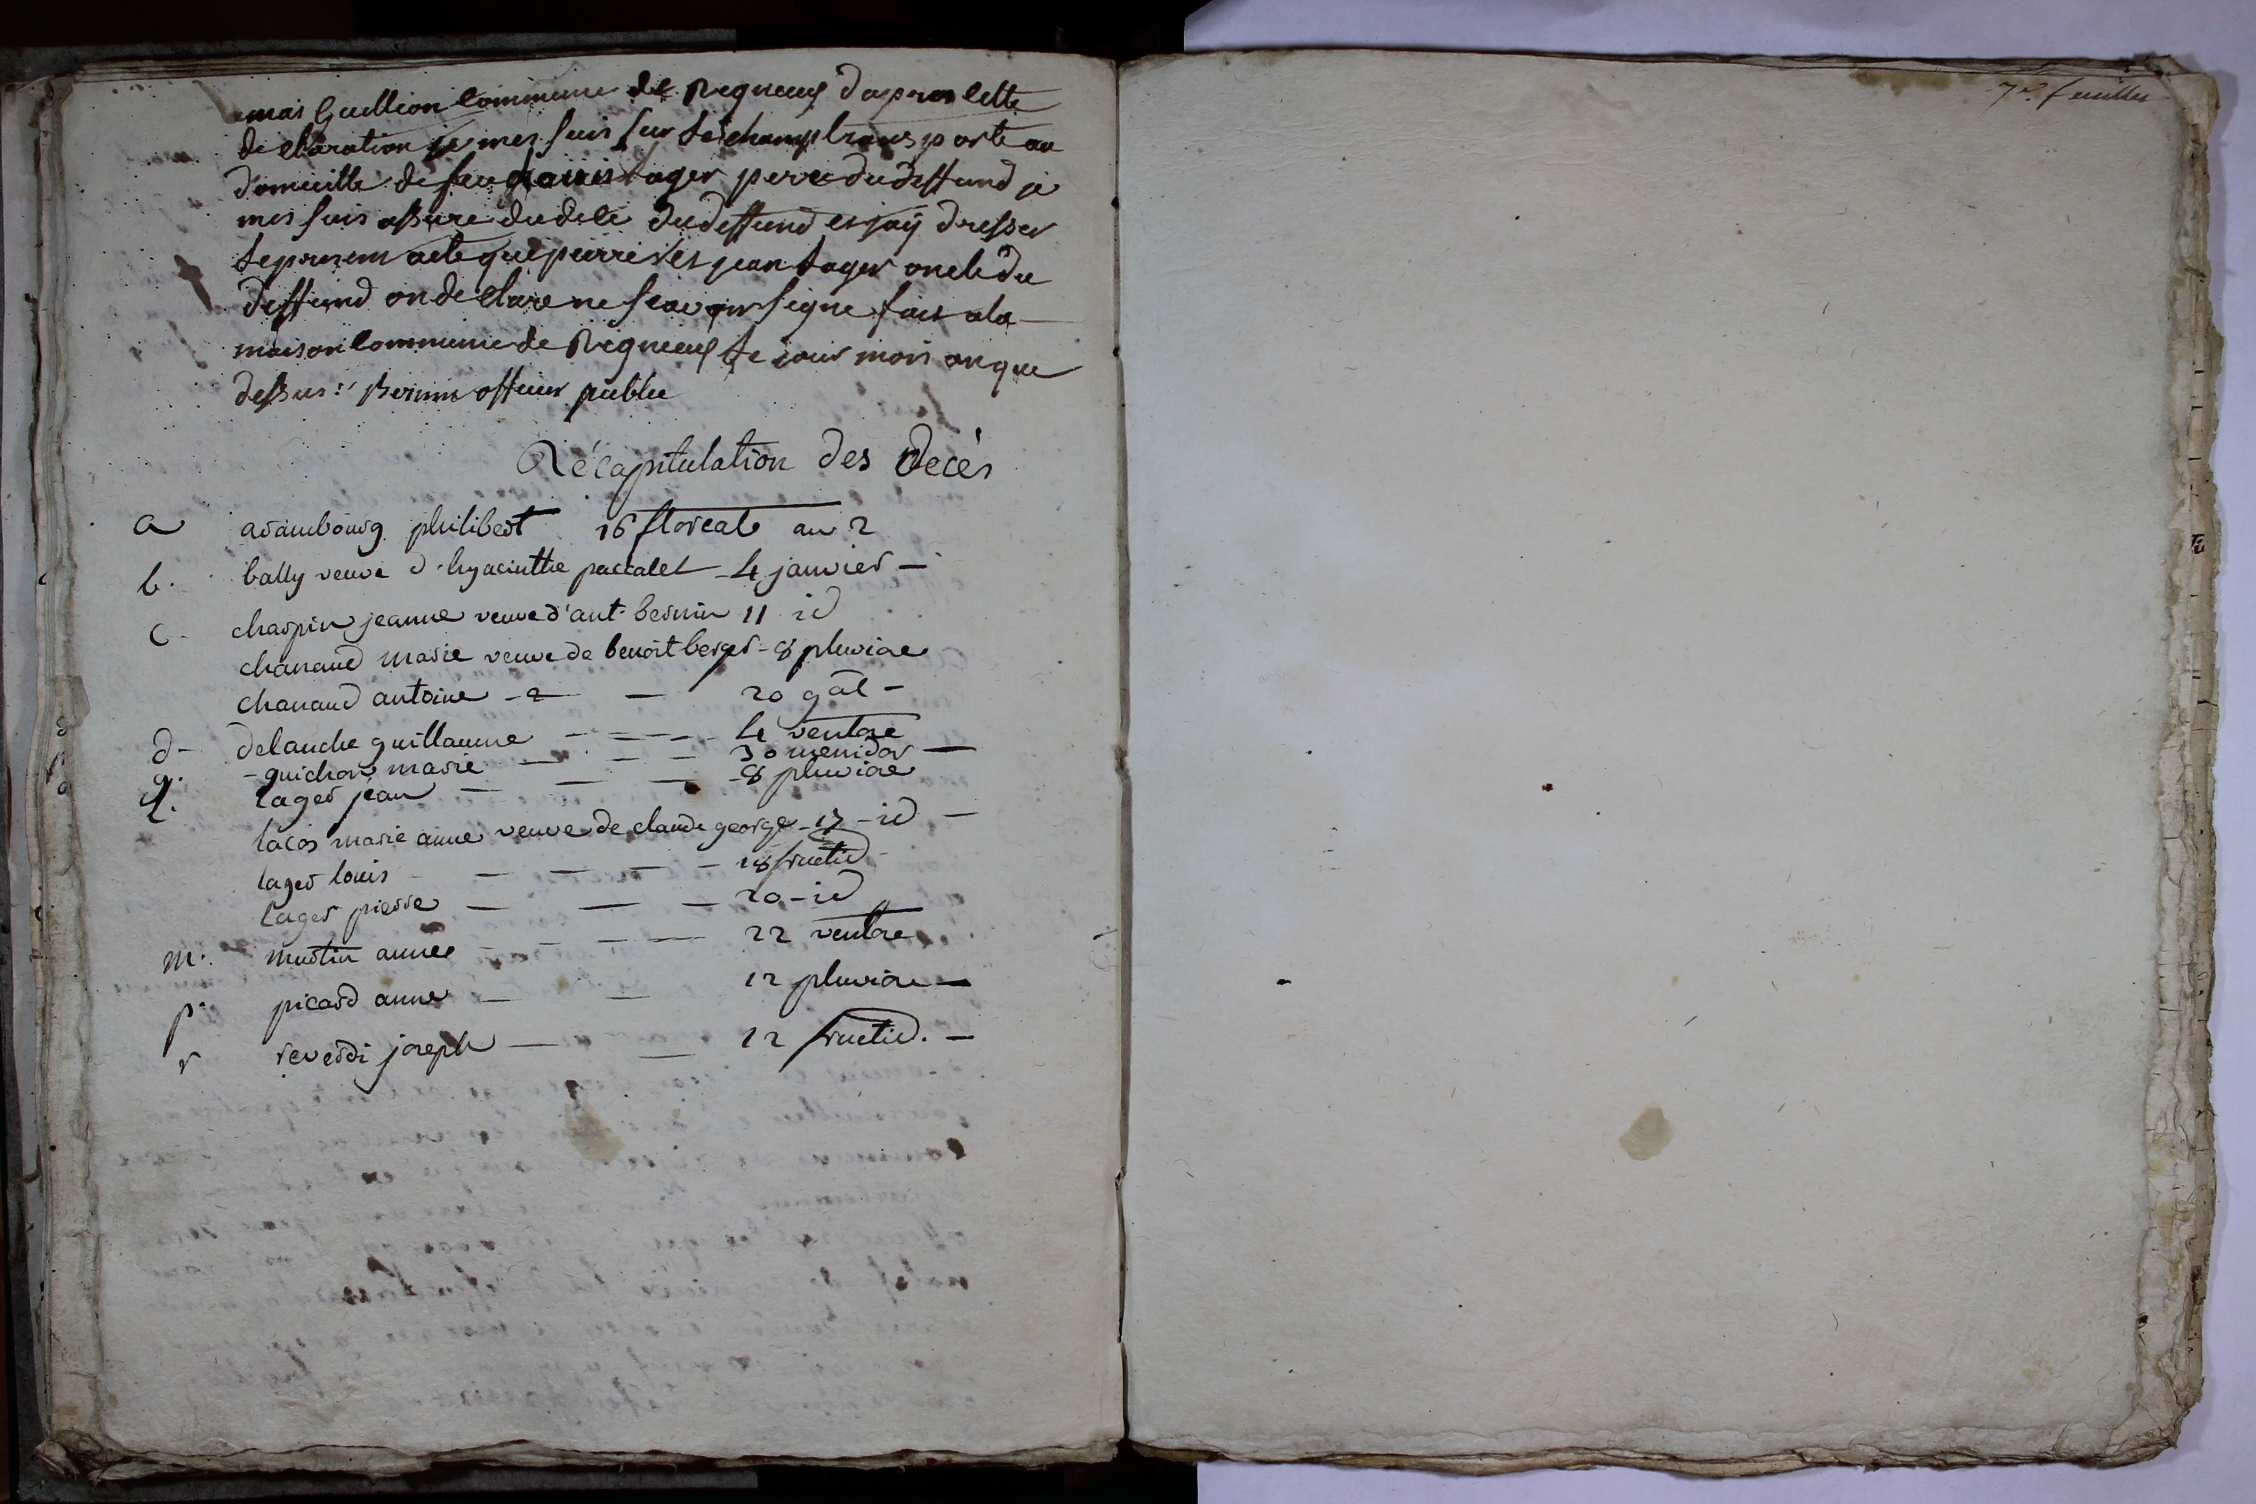 mai Guillion commune de Regneux dapres cette
declaration je mes suis sur le champ transporte au
domicille de feu louis lager pere du deffund je
mes suis assure du dece du deffund et jaÿ dresser
le present acte que pierre et jean lager oncle du
deffund on declare ne scavoir signe fait a la
maison commune de Regneux le jour mois an que
dessus : Bernin officier public
Récapitulation des Decès
a arambourg philibert 16 floreal an 2
b. bally veuve d'hyacinthe paccalet 4 janvier -
c - charpin jeanne veuve d'ant. bernin 11 id
chanaud marie veuve de benoit berger - 8 pluviose
chanaud antoine - 2 - 20 g.al -
d - delanche guillaume - - - - 4 ventose
g. - guichon marie - - - 30 mesidor -
l. lager jean - - - 8 pluviose
lacos marie anne veuve de claude george - 17 - id -
lager louis - - - - - 18 fructid -
lager pierre - - - 20 - id
m. martin annee - - - - 22 ventose
p. picard anne - - 12 pluviose -
r reverdi joseph - - 12 fructid. -
7e. feuillet